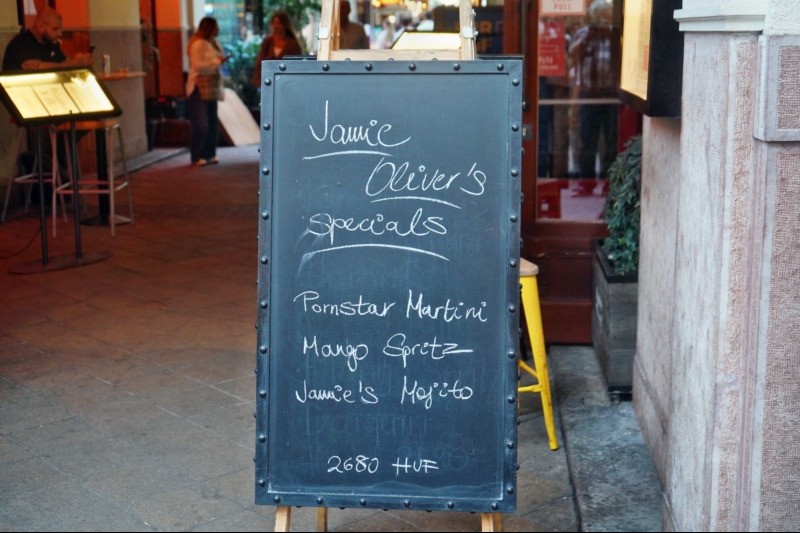 Jamie
Oliver's
specials
Pornstar Martini
Mango Spritz
Jamie's Mojito
2680 HUF
PULL